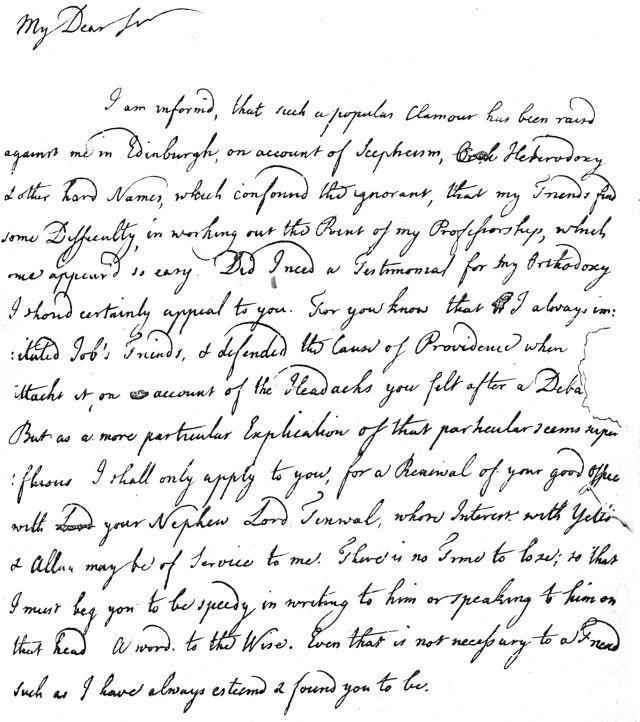 My Dear Sir
I am inform'd, that such a popular Clamour has been raisd
against me in Edinburgh, on account of Scepticism, Heterodoxy
& other hard Names, which confound the ignorant, that my Friends find
some Difficulty, in working out the Point of my Professorship, which
once appear'd so easy. Did I need a Testimonial for my Orthodoxy
I shoud certainly appeal to you. For you know that I always im:
:itated Job's Friends, & defended the Cause of Providence when
attackt it, on account of the Headachs you felt after a Deba
But as a more particular Explication of that particular seems super
:fluous I shall only apply to you, for a Renewal of your good Offices
with your Nephew Lord Tinwal, whose Interest with Yetts
& Allan may be of Service to me. There is no Time to lose; so that
I must beg you to be speedy in writing to him or speaking to him on
that head A word to the Wise. Even that is not necessary to a Friend
such as I have always esteemd & found you to be.